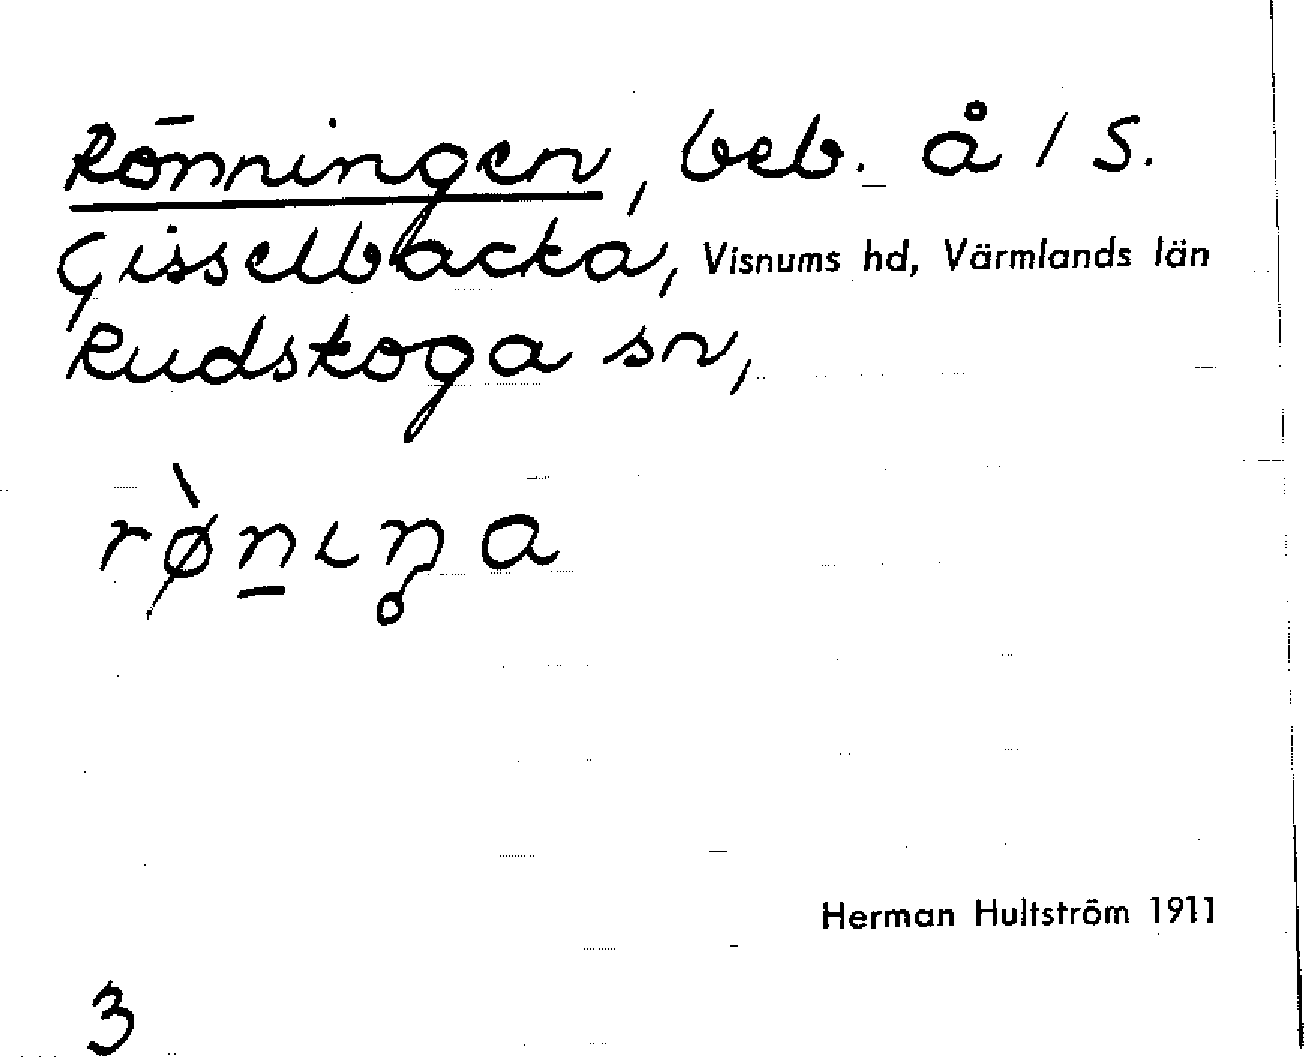 Rönningen, beb. å / S.
Gisselbacka, Visnums hd, Värmlands län
Rudskoga sn,
rø̀n̲ɩŋa
Herman Hultström 1911
3